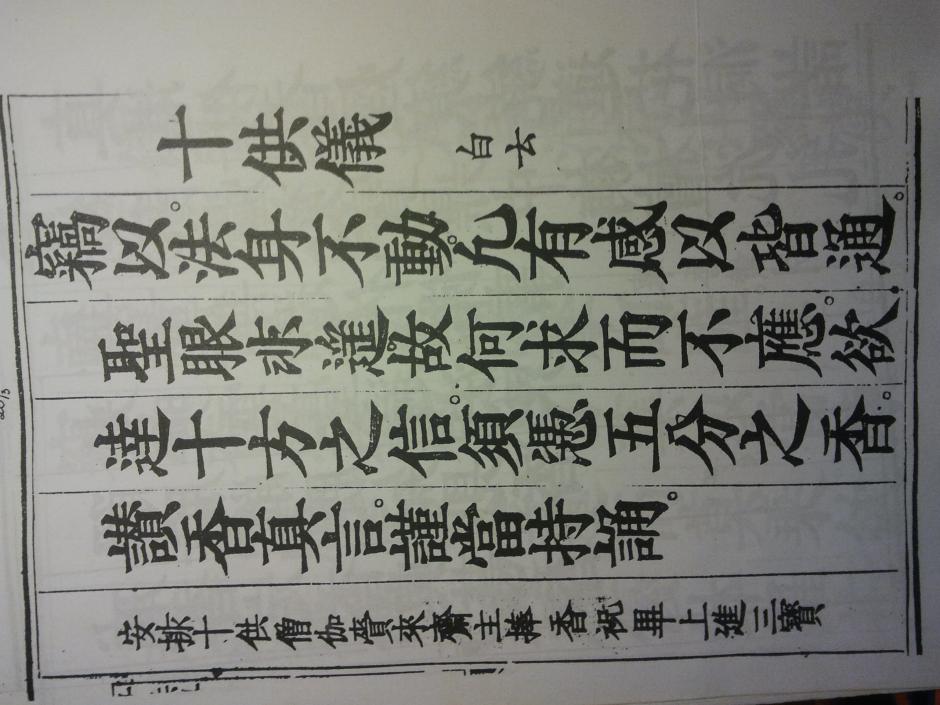 十供儀 白云
竊以。法身不動。凡有感以皆通。
聖眼非遥故何求而不應。欲
達十方之信。須憑五分之香。
讚香真言。謹當持誦。
安排十供僧伽賫來齋主捧香祝畢上進三寶